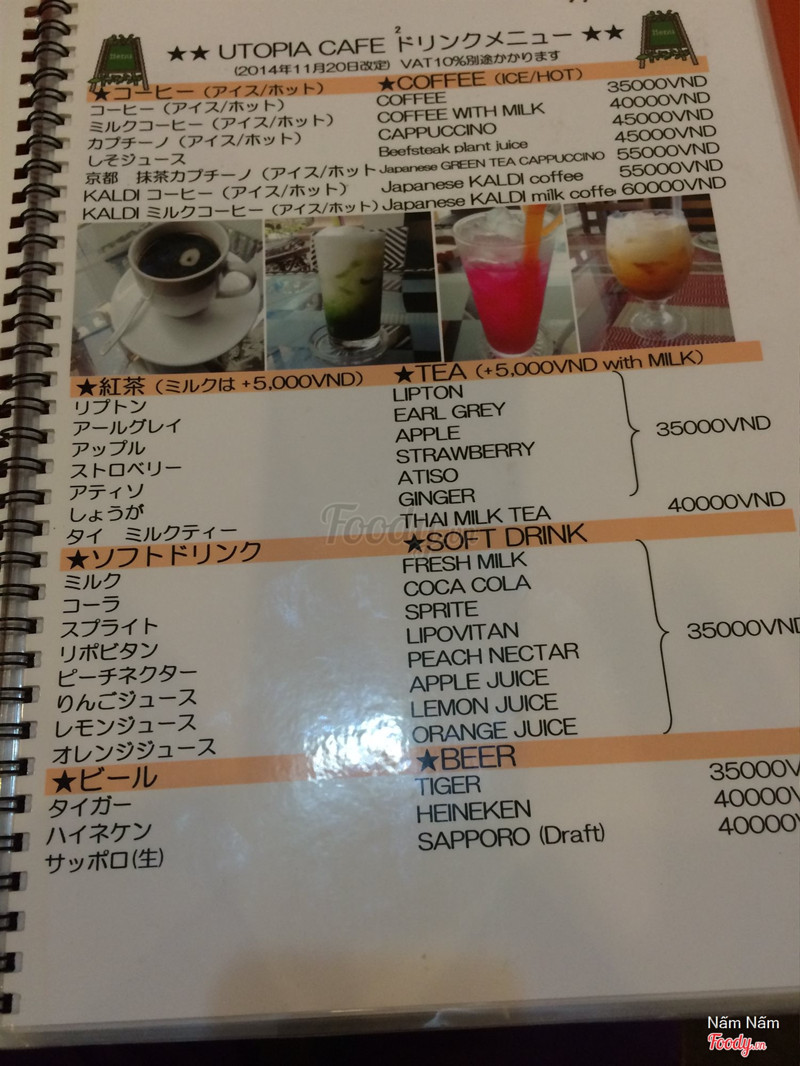 2
★★ UTOPIA CAFE ドリンクメニュー ★★
(2014年11月20日改定) VAT10%別途かかります
Menu
Menu
★コーヒー (アイス/ホット) ★COFFEE (ICE/HOT)
コーヒー (アイス/ホット) COFFEE 35000VND
ミルクコーヒー (アイス/ホット) COFFEE WITH MILK 40000VND
カプチーノ (アイス/ホット) CAPPUCCINO 45000VND
しそジュース Beefsteak plant juice 45000VND
京都 抹茶カプチーノ (アイス/ホット Japanese GREEN TEA CAPPUCCINO 55000VND
KALDI コーヒー (アイス/ホット) Japanese KALDI coffee 55000VND
KALDI ミルクコーヒー (アイス/ホット) Japanese KALDI milk coffe 60000VND
★紅茶 (ミルクは +5,000VND) ★TEA (+5,000VND with MILK)
リプトン LIPTON
アールグレイ EARL GREY
アップル APPLE 35000VND
ストロベリー STRAWBERRY
アティソ ATISO
しょうが GINGER
タイ ミルクティー THAI MILK TEA 40000VND
★ソフトドリンク ★SOFT DRINK
ミルク FRESH MILK
コーラ COCA COLA
スプライト SPRITE
リポビタン LIPOVITAN 35000VND
ピーチネクター PEACH NECTAR
りんごジュース APPLE JUICE
レモンジュース LEMON JUICE
オレンジジュース ORANGE JUICE
★ビール ★BEER
タイガー TIGER 35000V
ハイネケン HEINEKEN 40000V
サッポロ(生) SAPPORO (Draft) 40000V
Foody.vn
Nấm Nấm
Foody.vn